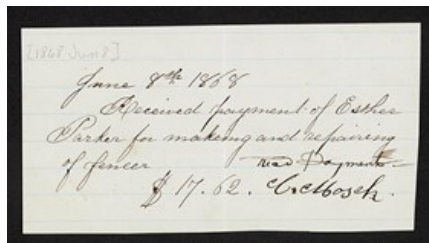 [1868 Jun 8]
June 8th 1868
Received payment of Esther
Parker for making and repairing
of fences read Payments
$ 17.62. C. C. Mosek.